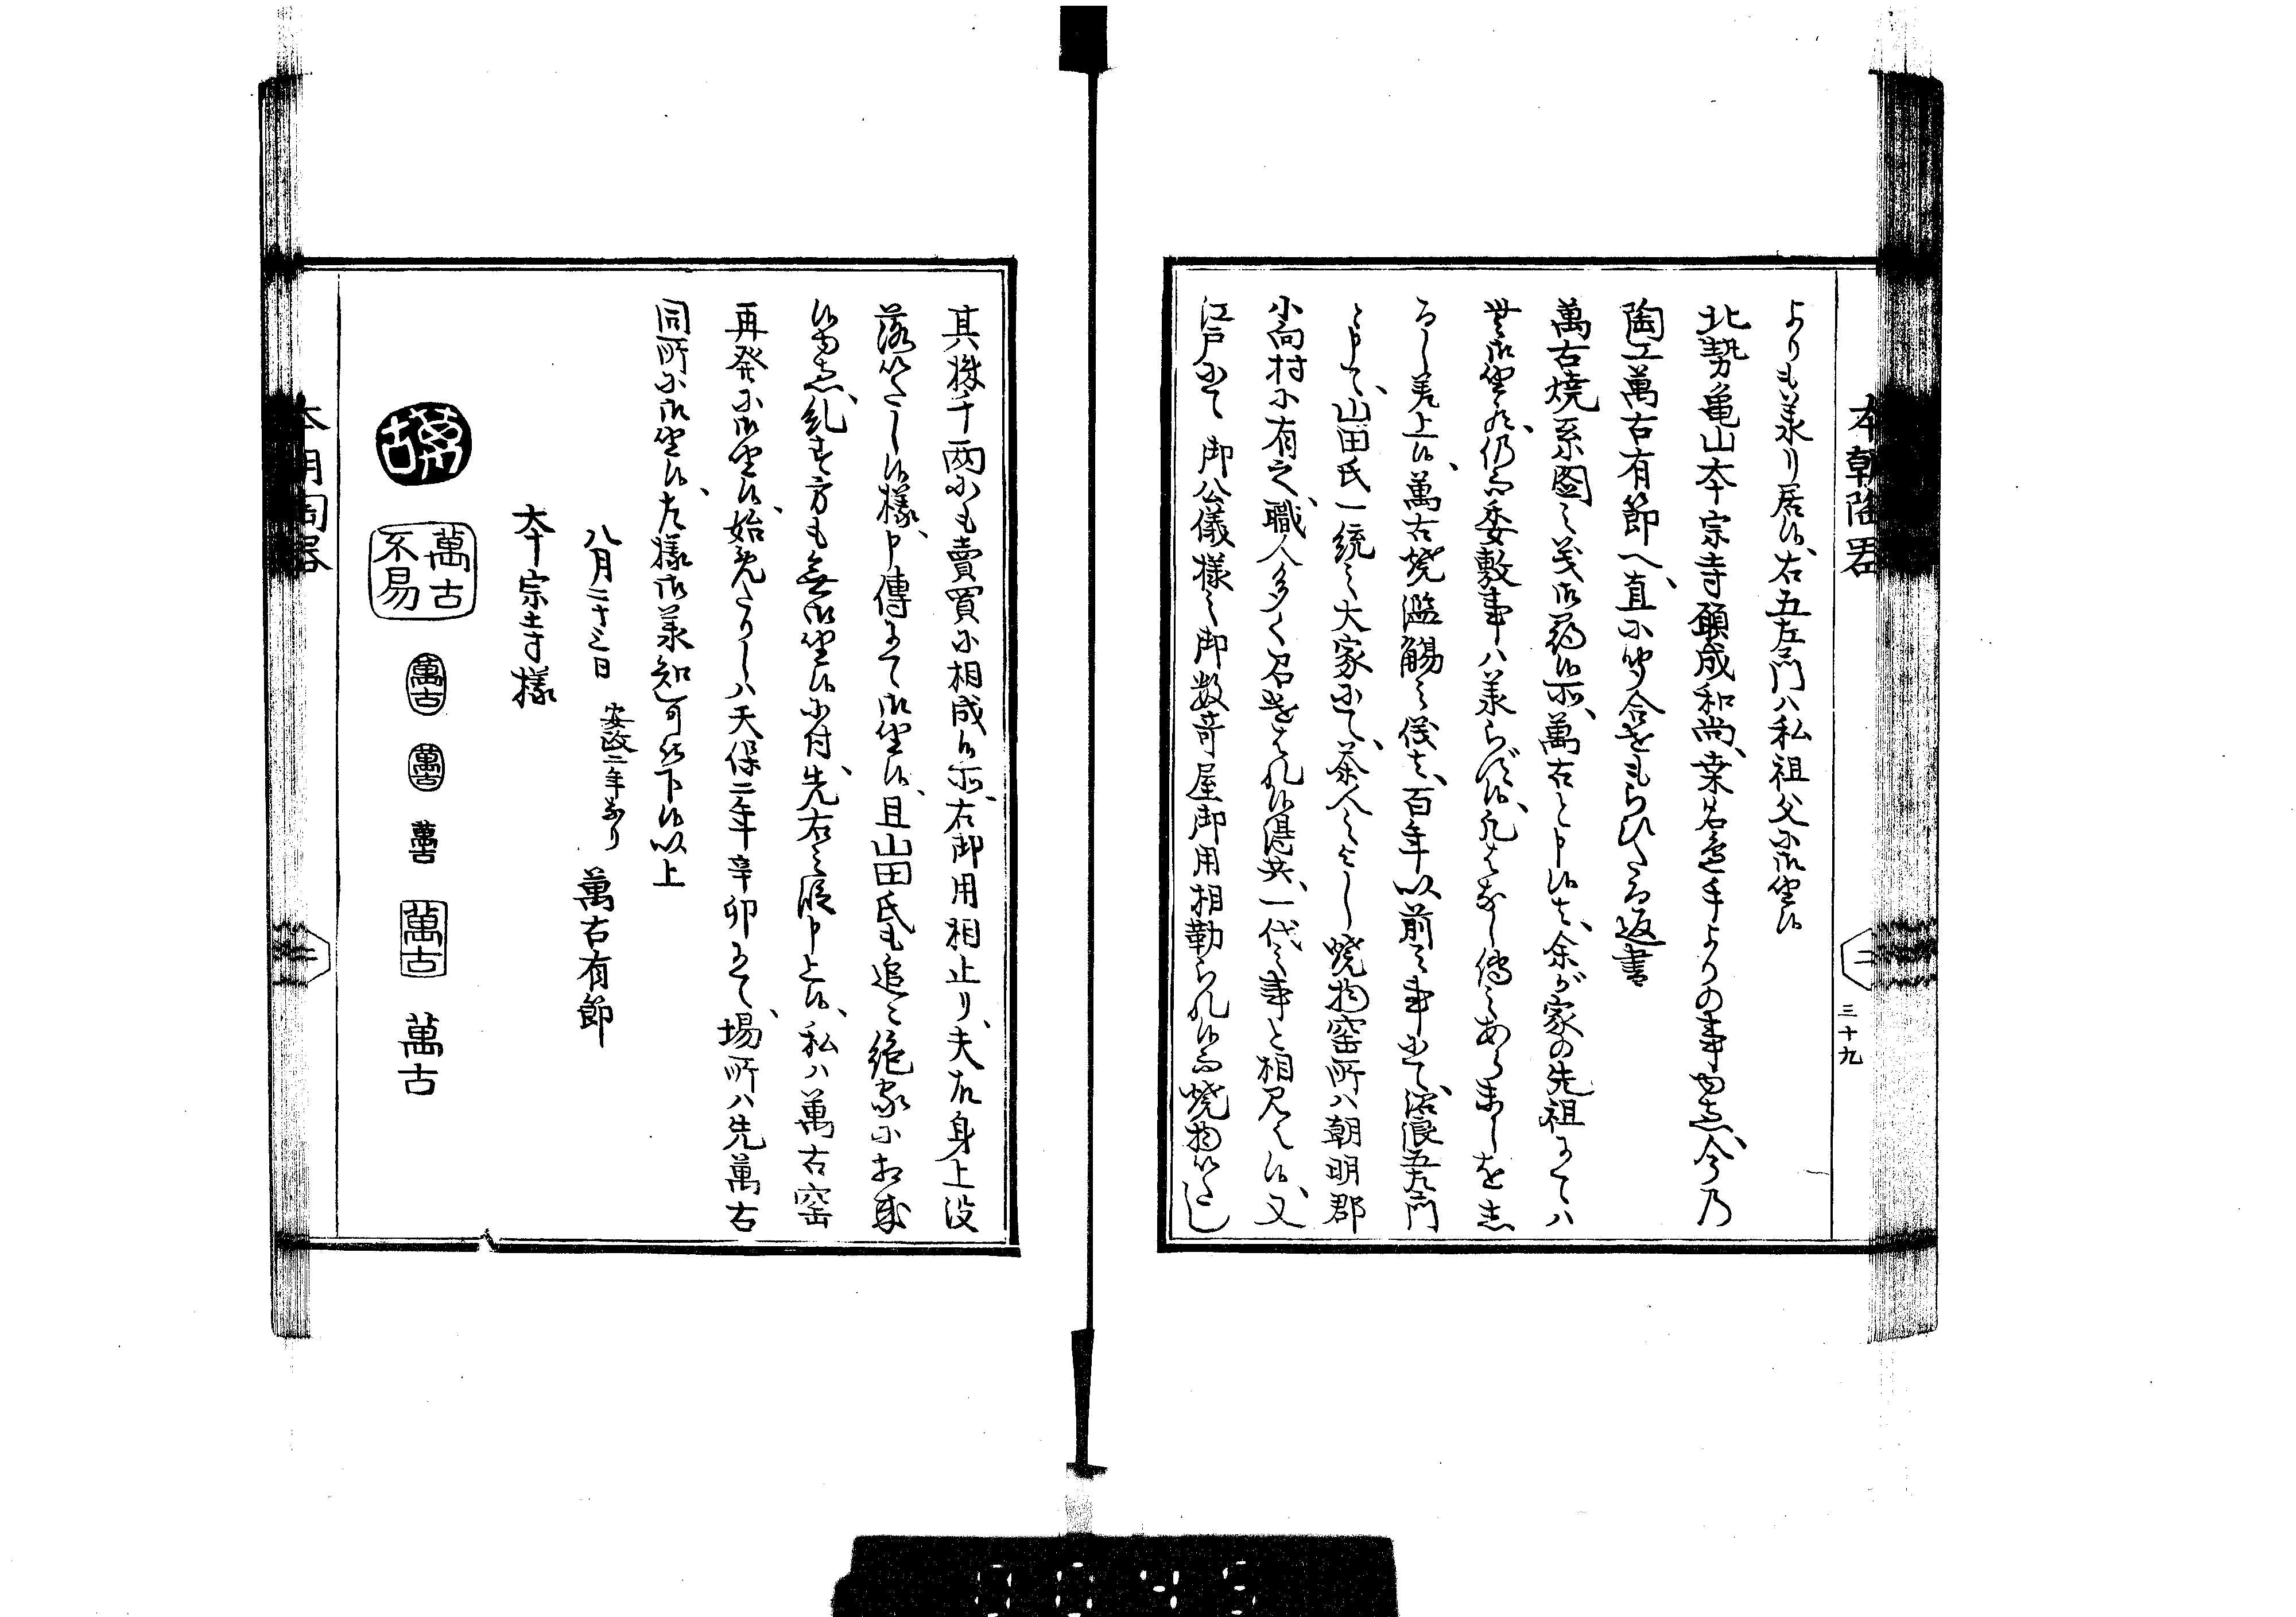 本朝陶器
二
三十九
よりも承り居候、右五左衛門ハ私祖父ニ御坐候
北勢亀山本宗寺願成和尚、桒名
陶工萬古有節へ、直ニ聞合せもらひたる返書
萬古焼系圖之義御尋候所、萬古と申候者、余が家の先祖ニて
無御坐候、仍而委敷事ハ承らず候
差上候、萬古焼濫觴之儀者、百年以前之事ニて、沼浪五左衛門
と申て、山田氏一統之大家ニて、茶人ニ焼物窑所ハ朝明郡
小向村ニ有之、職人多く召せられ候得共、一代之事と相見え候、又
江戸ニて　御公儀様之御数寄屋御用相勤られ候而焼物いたし
其後千両ニも賣買ニ相成候所、右御用相止り、夫故身上没
落いたし候様、申傳ニて御坐候、且山田氏も追々絶家ニ相成
候而者、糺すべき方も無御坐候ニ付、先右之段申上候、私ハ萬古窑
再発ニ御坐候、始めたりしハ天保二年辛卯ニて、場所ハ先萬古
同所ニ御坐候、左様御承知可被下候以上
八月二十三日　安政二年なり　萬古有節
本宗寺様
萬古
萬古不易
萬古
萬古
萬古
萬古
萬古
本朝陶器
二